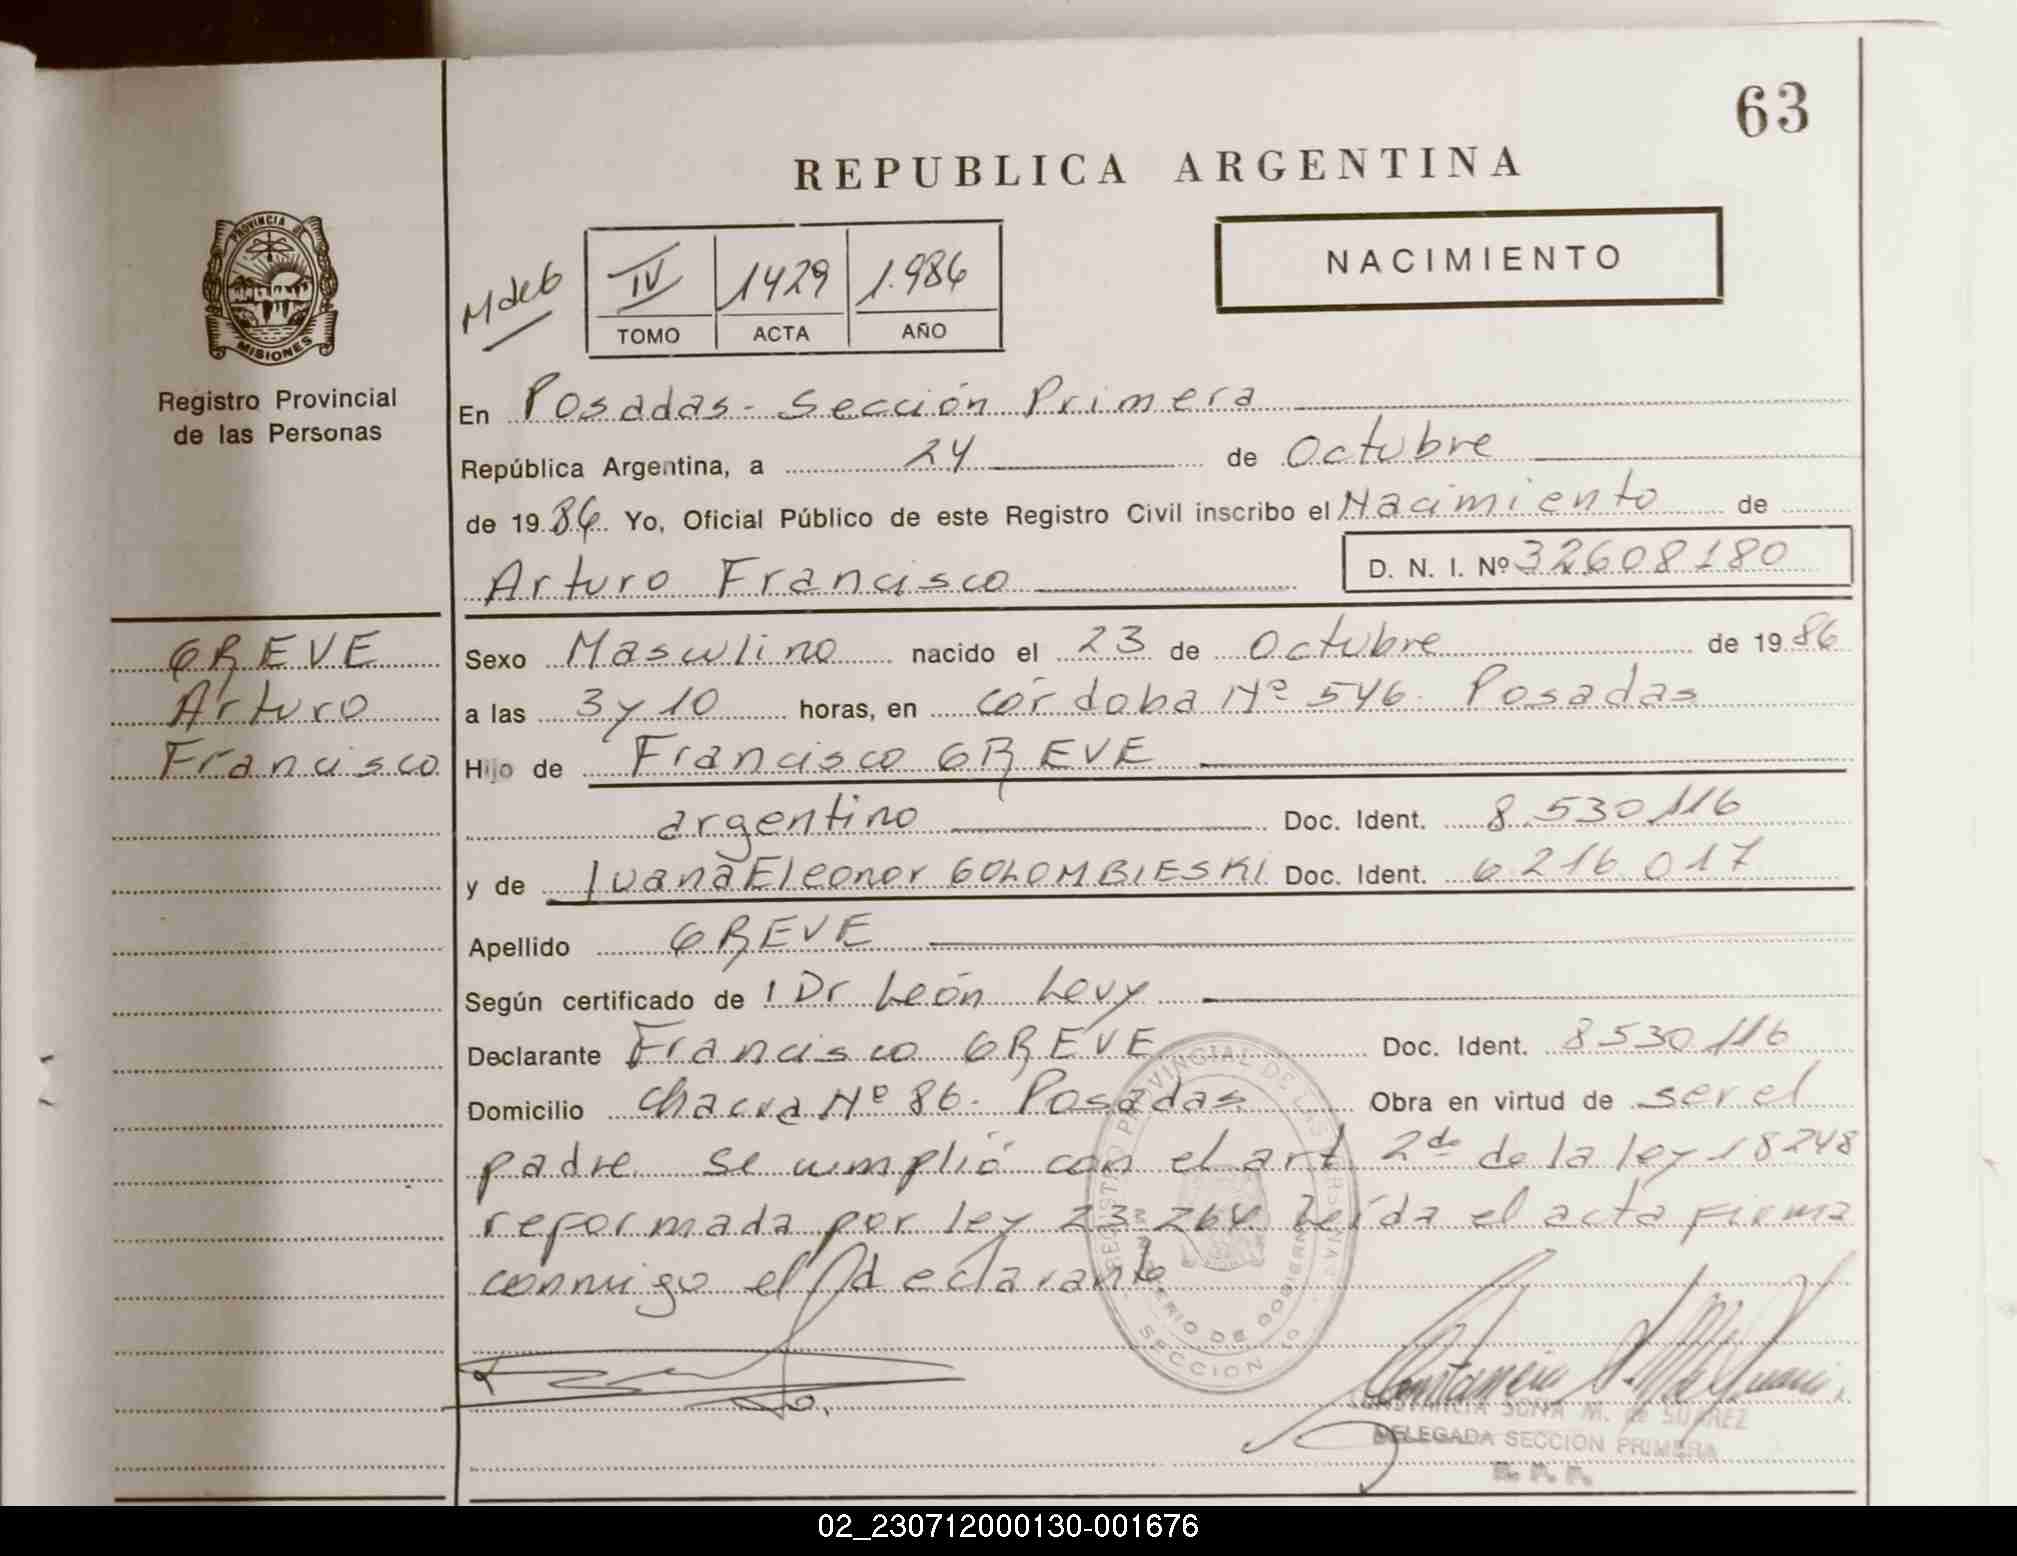 63
REPUBLICA ARGENTINA
PROVINCIA DE
MISIONES
Registro Provincial
de las Personas
NACIMIENTO
IV 1429 1.986
TOMO ACTA AÑO
En Posadas - Sección Primera
República Argentina, a 24 de Octubre
de 1986 Yo, Oficial Público de este Registro Civil inscribo el Nacimiento de
Arturo Francisco D. N. I. Nº 32608180
GREVE
Arturo
Francisco
Sexo Masculino nacido el 23 de Octubre de 1986
a las 3 y 10 horas, en córdoba Nº 546. Posadas
Hijo de Francisco GREVE
argentino Doc. Ident. 8.530116
y de Juana Eleonor GOLOMBIESKI Doc. Ident. 6216017
Apellido GREVE
Según certificado de Dr León Levy
Declarante Francisco GREVE Doc. Ident. 8530116
Domicilio chacra Nº 86. Posadas Obra en virtud de ser el
padre se cumplió con el art 2do de la ley 18248
reformada por ley 23.264 Leída el acta firma
conmigo el declarante
REGISTRO PROVINCIAL DE LAS PERSONAS
DE GOBIERNO
SECCION 1º
CONSTANCIA SONA M. de SUAREZ
DELEGADA SECCION PRIMERA
R. P. P.
02_230712000130-001676